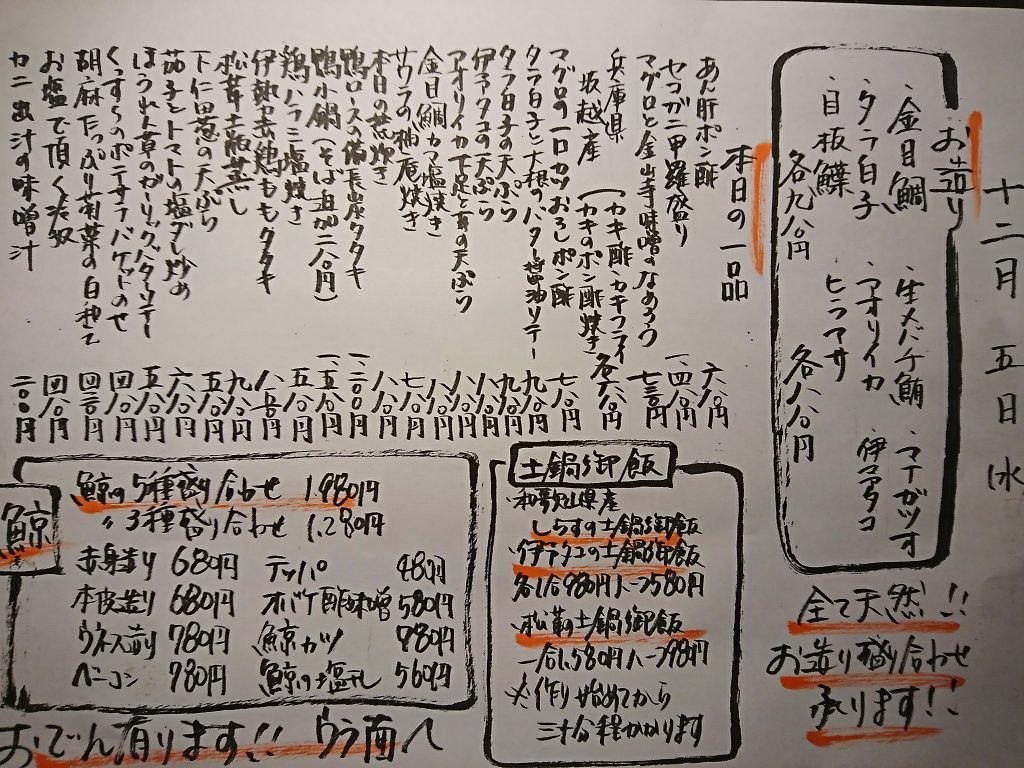 十二月五日水
お造り
・金目鯛 ・生メバチ鮪 ・マナガツオ
・タラ白子 ・アオリイカ ・伊マアタコ
・目板鰈 ・ヒラマサ
各九八〇円 各八八〇円
全て天然!!
お造り盛り合わせ
承ります!!
本日の一品
あん肝ポン酢 六八〇円
セコガニ甲羅盛り 一、四八〇円
マグロと金山寺味噌のなめろう 七三〇円
兵庫県
坂越産
カキ酢・カキフライ
カキのポン酢焼き 各六八〇円
マグロの一口カツおろしポン酢 七八〇円
タラ白子と大根のバター醤油ソテー 九八〇円
タラ白子の天ぷら 九八〇円
伊予タコの天ぷら 八八〇円
アオリイカ下足と身の天ぷら 八八〇円
金目鯛カマ塩焼き 八八〇円
サワラの柚庵焼き 七八〇円
本日の煮炊き 八八〇円
鴨ロースの備長炭タタキ 一、二〇〇円
鴨小鍋(そば追加二八〇円) 一、五八〇円
鶏ハラミ塩焼き 五八〇円
伊勢赤鶏ももタタキ 八八〇円
松茸土瓶蒸し 九八〇円
下仁田葱の天ぷら 五八〇円
茄子とトマトの塩ダレ炒め 六八〇円
ほうれん草のガーリックバターソテー 五八〇円
くんすらのポテサラバケットのせ 四八〇円
胡麻たっぷり菊菜の白和え 四三〇円
お塩で頂く冷奴 四八〇円
カニ出汁の味噌汁 二〇〇円
土鍋御飯
・和歌山県産
しらすの土鍋御飯
・伊予タコの土鍋御飯
各1合980円ハーフ580円
・松茸の土鍋御飯
一合1,580円ハーフ980円
※作り始めてから
三十分程かかります
鯨
鯨の5種盛り合わせ 1,980円
〃 3種盛り合わせ 1,280円
赤身造り 680円 テッパ 480円
本皮造り 680円 オバケ酢味噌 580円
ウネス造り 780円 鯨カツ 780円
ベーコン 780円 鯨の塩タレ 560円
おでん有ります!! ウラ面へ